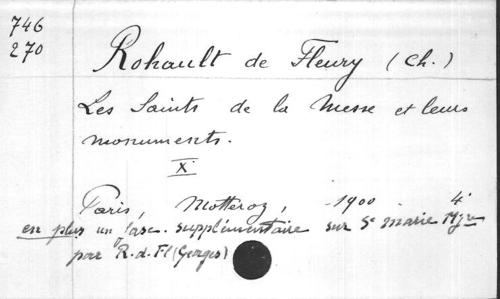 746
270
Rohault de Fleury (Ch.)
Les Saints de la Messe et leurs
monuments.
X
Paris, Motteroz, 1900. 4°
en plus un fasc. supplémentaire sur Ste Marie
par R. d. Fl (Georges)